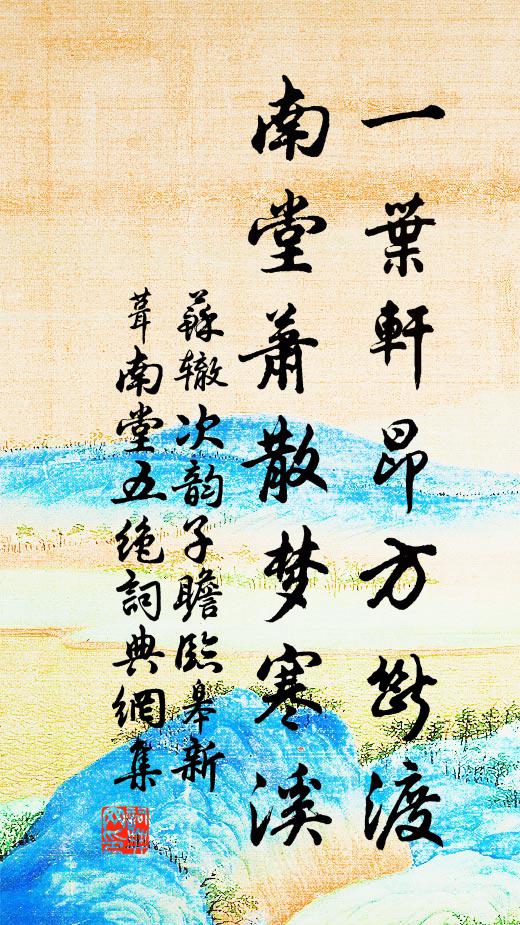 一葉軒昂方斷渡
南堂蕭散梦寒溪
蘇辙次韵子瞻臨皋新
葺南堂五绝詞典網集